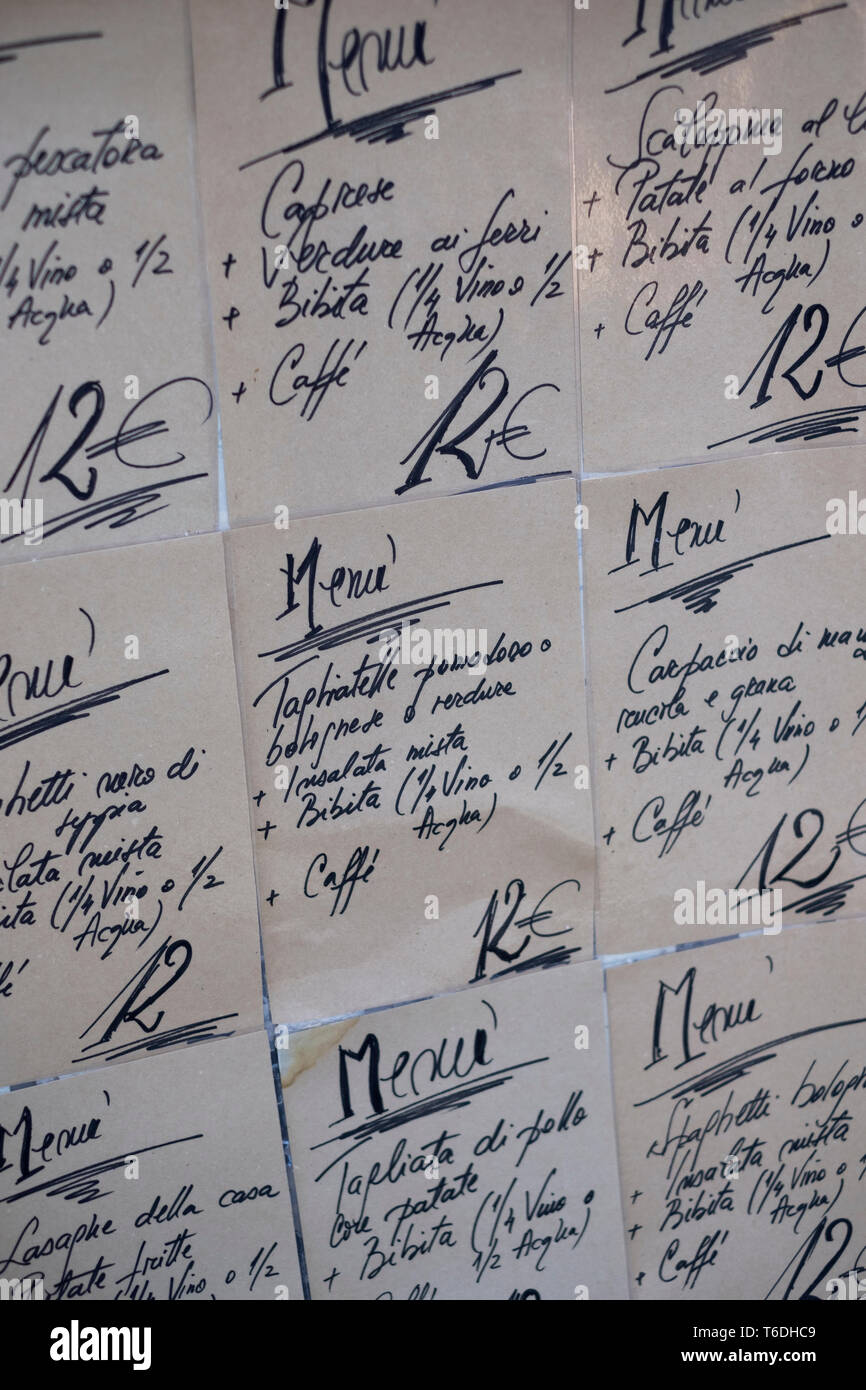 pescatora
mista
1/4 Vino o 1/2
Acqua)
12€
Menù
Caprese
+ Verdure ai ferri
+ Bibita (1/4 Vino o 1/2
Acqua)
+ Caffé
12€
Scaloppine al
+ Patate al forno
+ Bibita (1/4 Vino o
Acqua)
+ Caffé
12€
Menù
nero di
seppia
mista
(1/4 Vino o 1/2
Acqua)
12
Menù
Tagliatelle pomodoro o
bolognese o verdure
+ Insalata mista
+ Bibita (1/4 Vino o 1/2
Acqua)
+ Caffé
12€
Menù
Carpaccio di
rucola e grana
+ Bibita (1/4 Vino o
Acqua)
+ Caffé
12€
Menù
Lasagne della casa
Patate fritte
(1/4 Vino, o 1/2
Menù
Tagliata di pollo
con patate
+ Bibita (1/4 Vino o
1/2 Acqua)
Menù
Spaghetti
+ Insalata mista
+ Bibita (1/4 Vino o
Acqua)
+ Caffé
12
alamy
Image ID: T6DHC9
www.alamy.com